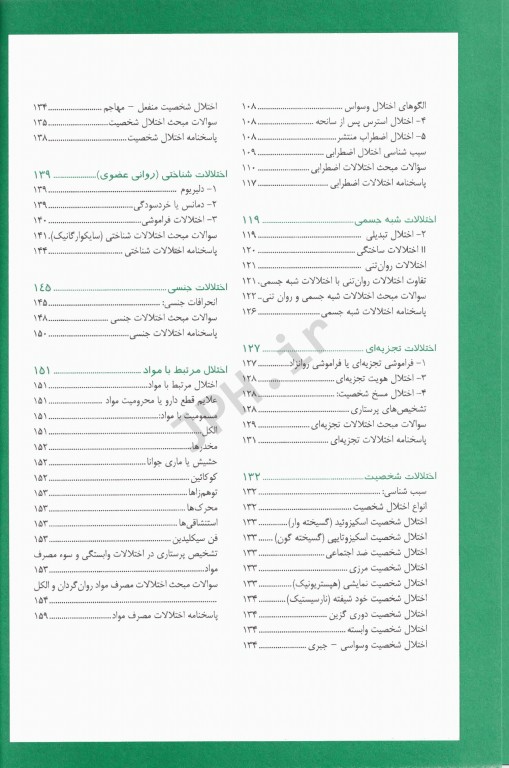 الگوهای اختلال وسواس ..... ۱۰۸
۴- اختلال استرس پس از سانحه ..... ۱۰۸
۵- اختلال اضطراب منتشر ..... ۱۰۸
سبب شناسی اختلال اضطرابی ..... ۱۰۹
سؤالات مبحث اختلالات اضطرابی ..... ۱۱۰
پاسخنامه اختلالات اضطرابی ..... ۱۱۷
اختلالات شبه جسمی ..... ۱۱۹
۲- اختلال تبدیلی ..... ۱۱۹
II اختلالات ساختگی ..... ۱۲۰
اختلالات روان‌تنی ..... ۱۲۱
تفاوت اختلالات روان‌تنی با اختلالات شبه جسمی. ۱۲۱
سوالات مبحث اختلالات شبه جسمی و روان تنی.. ۱۲۲
پاسخنامه اختلالات شبه جسمی ..... ۱۲۶
اختلالات تجزیه‌ای ..... ۱۲۷
۱- فراموشی تجزیه‌ای یا فراموشی روانزاد ..... ۱۲۷
۳- اختلال هویت تجزیه‌ای ..... ۱۲۸
۴- اختلال مسخ شخصیت: ..... ۱۲۸
تشخیص‌های پرستاری ..... ۱۲۸
سوالات مبحث اختلالات تجزیه‌ای ..... ۱۲۹
پاسخنامه اختلالات تجزیه‌ای ..... ۱۳۱
اختلالات شخصیت ..... ۱۳۲
سبب شناسی: ..... ۱۳۲
انواع اختلال شخصیت ..... ۱۳۲
اختلال شخصیت اسکیزوئید (گسیخته وار) ..... ۱۳۳
اختلال شخصیت اسکیزوتایپی (گسیخته گون) ..... ۱۳۳
اختلال شخصیت ضد اجتماعی ..... ۱۳۳
اختلال شخصیت مرزی ..... ۱۳۳
اختلال شخصیت نمایشی (هیستریونیک) ..... ۱۳۳
اختلال شخصیت خود شیفته (نارسیستیک) ..... ۱۳۴
اختلال شخصیت دوری گزین ..... ۱۳۴
اختلال شخصیت وابسته ..... ۱۳۴
اختلال شخصیت وسواسی – جبری ..... ۱۳۴
اختلال شخصیت منفعل – مهاجم ..... ۱۳۴
سوالات مبحث اختلال شخصیت ..... ۱۳۵
پاسخنامه اختلال شخصیت ..... ۱۳۸
اختلالات شناختی (روانی عضوی) ..... ۱۳۹
۱- دلیریوم ..... ۱۳۹
۲- دمانس یا خردسودگی ..... ۱۳۹
۳- اختلالات فراموشی ..... ۱۴۰
سوالات مبحث اختلالات شناختی (سایکوارگانیک). ۱۴۱
پاسخنامه اختلالات شناختی ..... ۱۴۴
اختلالات جنسی ..... ۱۴۵
انحرافات جنسی: ..... ۱۴۵
سوالات مبحث اختلالات جنسی ..... ۱۴۸
پاسخنامه اختلالات جنسی ..... ۱۵۰
اختلال مرتبط با مواد ..... ۱۵۱
اختلال مرتبط با مواد ..... ۱۵۱
علایم قطع دارو یا محرومیت مواد ..... ۱۵۱
مسمومیت با مواد: ..... ۱۵۱
الکل ..... ۱۵۱
مخدرها ..... ۱۵۲
حشیش یا ماری جوانا ..... ۱۵۲
کوکائین ..... ۱۵۲
توهم‌زاها ..... ۱۵۳
محرک‌ها ..... ۱۵۳
استنشاقی‌ها ..... ۱۵۳
فن سیکلیدین ..... ۱۵۳
تشخیص پرستاری در اختلالات وابستگی و سوء مصرف
مواد ..... ۱۵۳
سوالات مبحث اختلالات مصرف مواد روان‌گردان و الکل
..... ۱۵۴
پاسخنامه اختلالات مصرف مواد ..... ۱۵۹
JPH.ir